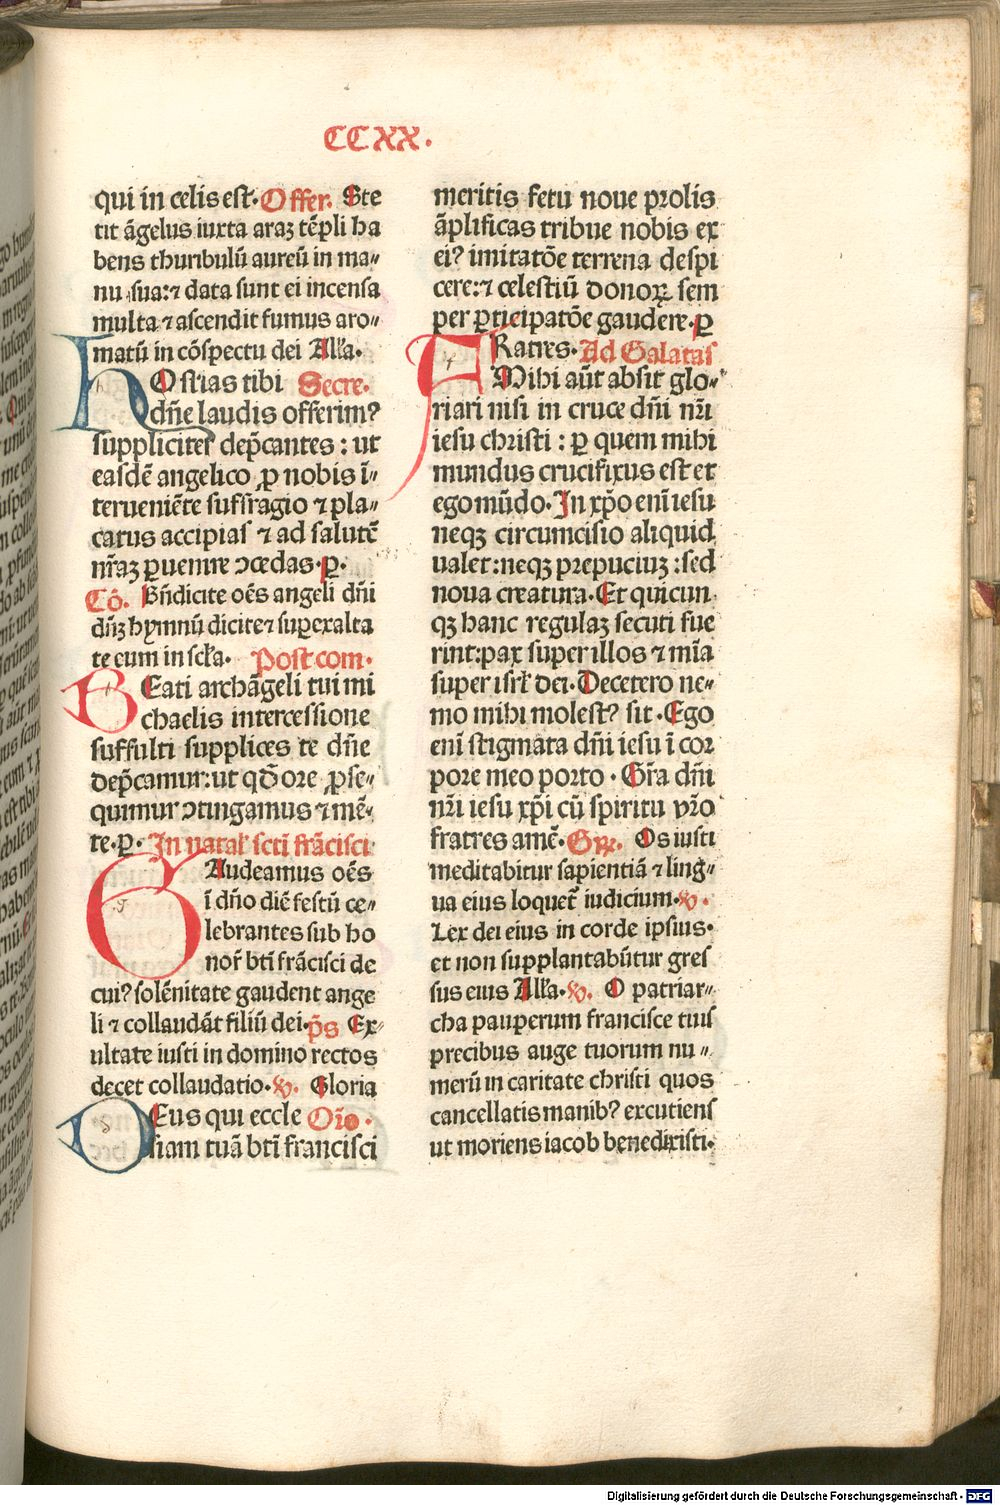 CCXX.
qui in celis est. Offer. Ste
tit ãgelus iuxta araꝫ tẽpli ha
bens thuribulũ aureũ in ma⸗
nu sua:⁊ data sunt ei incensa
multa ⁊ ascendit fumus aro⸗
matũ in cõspectu dei Alľa.
HOstias tibi Secre.
dñe laudis offerimꝰ
suppliciter dep̃cantes : ut
easdẽ angelico ꝓ nobis ĩ⸗
terueniẽte suffragio ⁊ pla⸗
catus accipias ⁊ ad salutẽ
nr̃aꝫ ꝑuenire ↄcedas.ꝑ.
Cõ. Bñdicite oẽs angeli dñi
dñꝫ hymnũ dicite⁊ suꝑexalta
te eum in scľa. Post com.
BEati archãgeli tui mi
chaelis intercessione
suffulti supplices te dñe
dep̃camur:ut qđ ore ꝓse⸗
quimur ↄtingamus ⁊ mẽ⸗
te.ꝑ. In natal' scti frãcisci
GAudeamus oẽs
ĩ dño diẽ festũ ce⸗
lebrantes sub ho
nor̃ bti frãcisci de
cuiꝰ solẽnitate gaudent ange
li ⁊ collaudãt filiũ dei.p̃s Ex⸗
ultate iusti in domino rectos
decet collaudatio.℣. Gloria
DEus qui eccle Oĩo.
siam tuã bti francisci
meritis fetu noue prolis
ãplificas tribue nobis ex
eiꝰ imitatõe terrena despi
cere:⁊ celestiũ donoꝝ sem
per ꝑticipatõe gaudere.ꝑ
FRatres. Ad Galatas
Mihi aũt absit glo⸗
riari nisi in cruce dñi nr̃i
iesu christi : ꝑ quem mihi
mundus crucifixus est et
ego mũdo. In xp̃o enĩ iesu
neqꝫ circumcisio aliquid
ualet:neqꝫ prepuciuꝫ :sed
noua creatura. Et quicun
qꝫ hanc regulaꝫ secuti fue
rint:pax super illos ⁊ mĩa
super isrľ dei. Decetero ne⸗
mo mihi molestꝰ sit. Ego
enĩ stigmata dñi iesu ĩ cor
pore meo porto. Gr̃a dñi
nr̃i iesu xp̃i cũ spiritu vr̃o
fratres amẽ. Gꝝ. Os iusti
meditabitur sapientiã ⁊ ling⸗
ua eius loquet̃ iudicium.℣.
Lex dei eius in corde ipsius.
et non supplantabũtur gres
sus eius Alľa.℣. O patriar⸗
cha pauperum francisce tuis
precibus auge tuorum nu⸗
merũ in caritate christi quos
cancellatis manibꝰ excutiens
ut moriens iacob benedixisti.
Digitalisierung gefördert durch die Deutsche Forschungsgemeinschaft - DFG